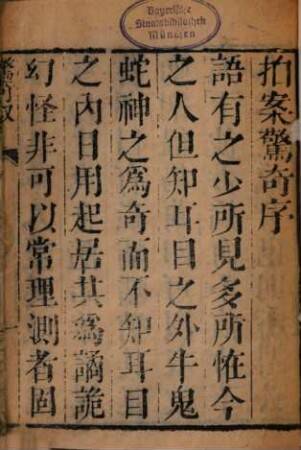 Bayerische
Staatsbibliothek
München
拍案驚奇序
語有之少所見多所恠今
之人但知耳目之外牛鬼
蛇神之為奇而不知耳目
之內日用起居其為譎詭
幻怪非可以常理測者固